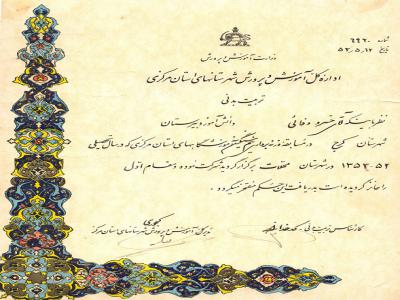 شماره ۶۹۲۰
تاریخ ۵۳،۵،۱۲
وزارت آموزش و پرورش
اداره کل آموزش و پرورش شهرستانهای استان مرکزی
تربیت بدنی
نظر باینکه آقای خسرو وفائی دانش آموز دبیرستان
شهرستان کرج در مسابقه آموزشگاههای استان مرکزی که در سال تحصیلی
۱۳۵۳-۵۲ در شهرستان محلات برگزار گردید شرکت نموده و مقام اول
را حائز گردیده است بدریافت این حکم مفتخر میگردد .
کارشناس تربیت بدنی
مدیر کل آموزش و پرورش شهرستانهای استان مرکز